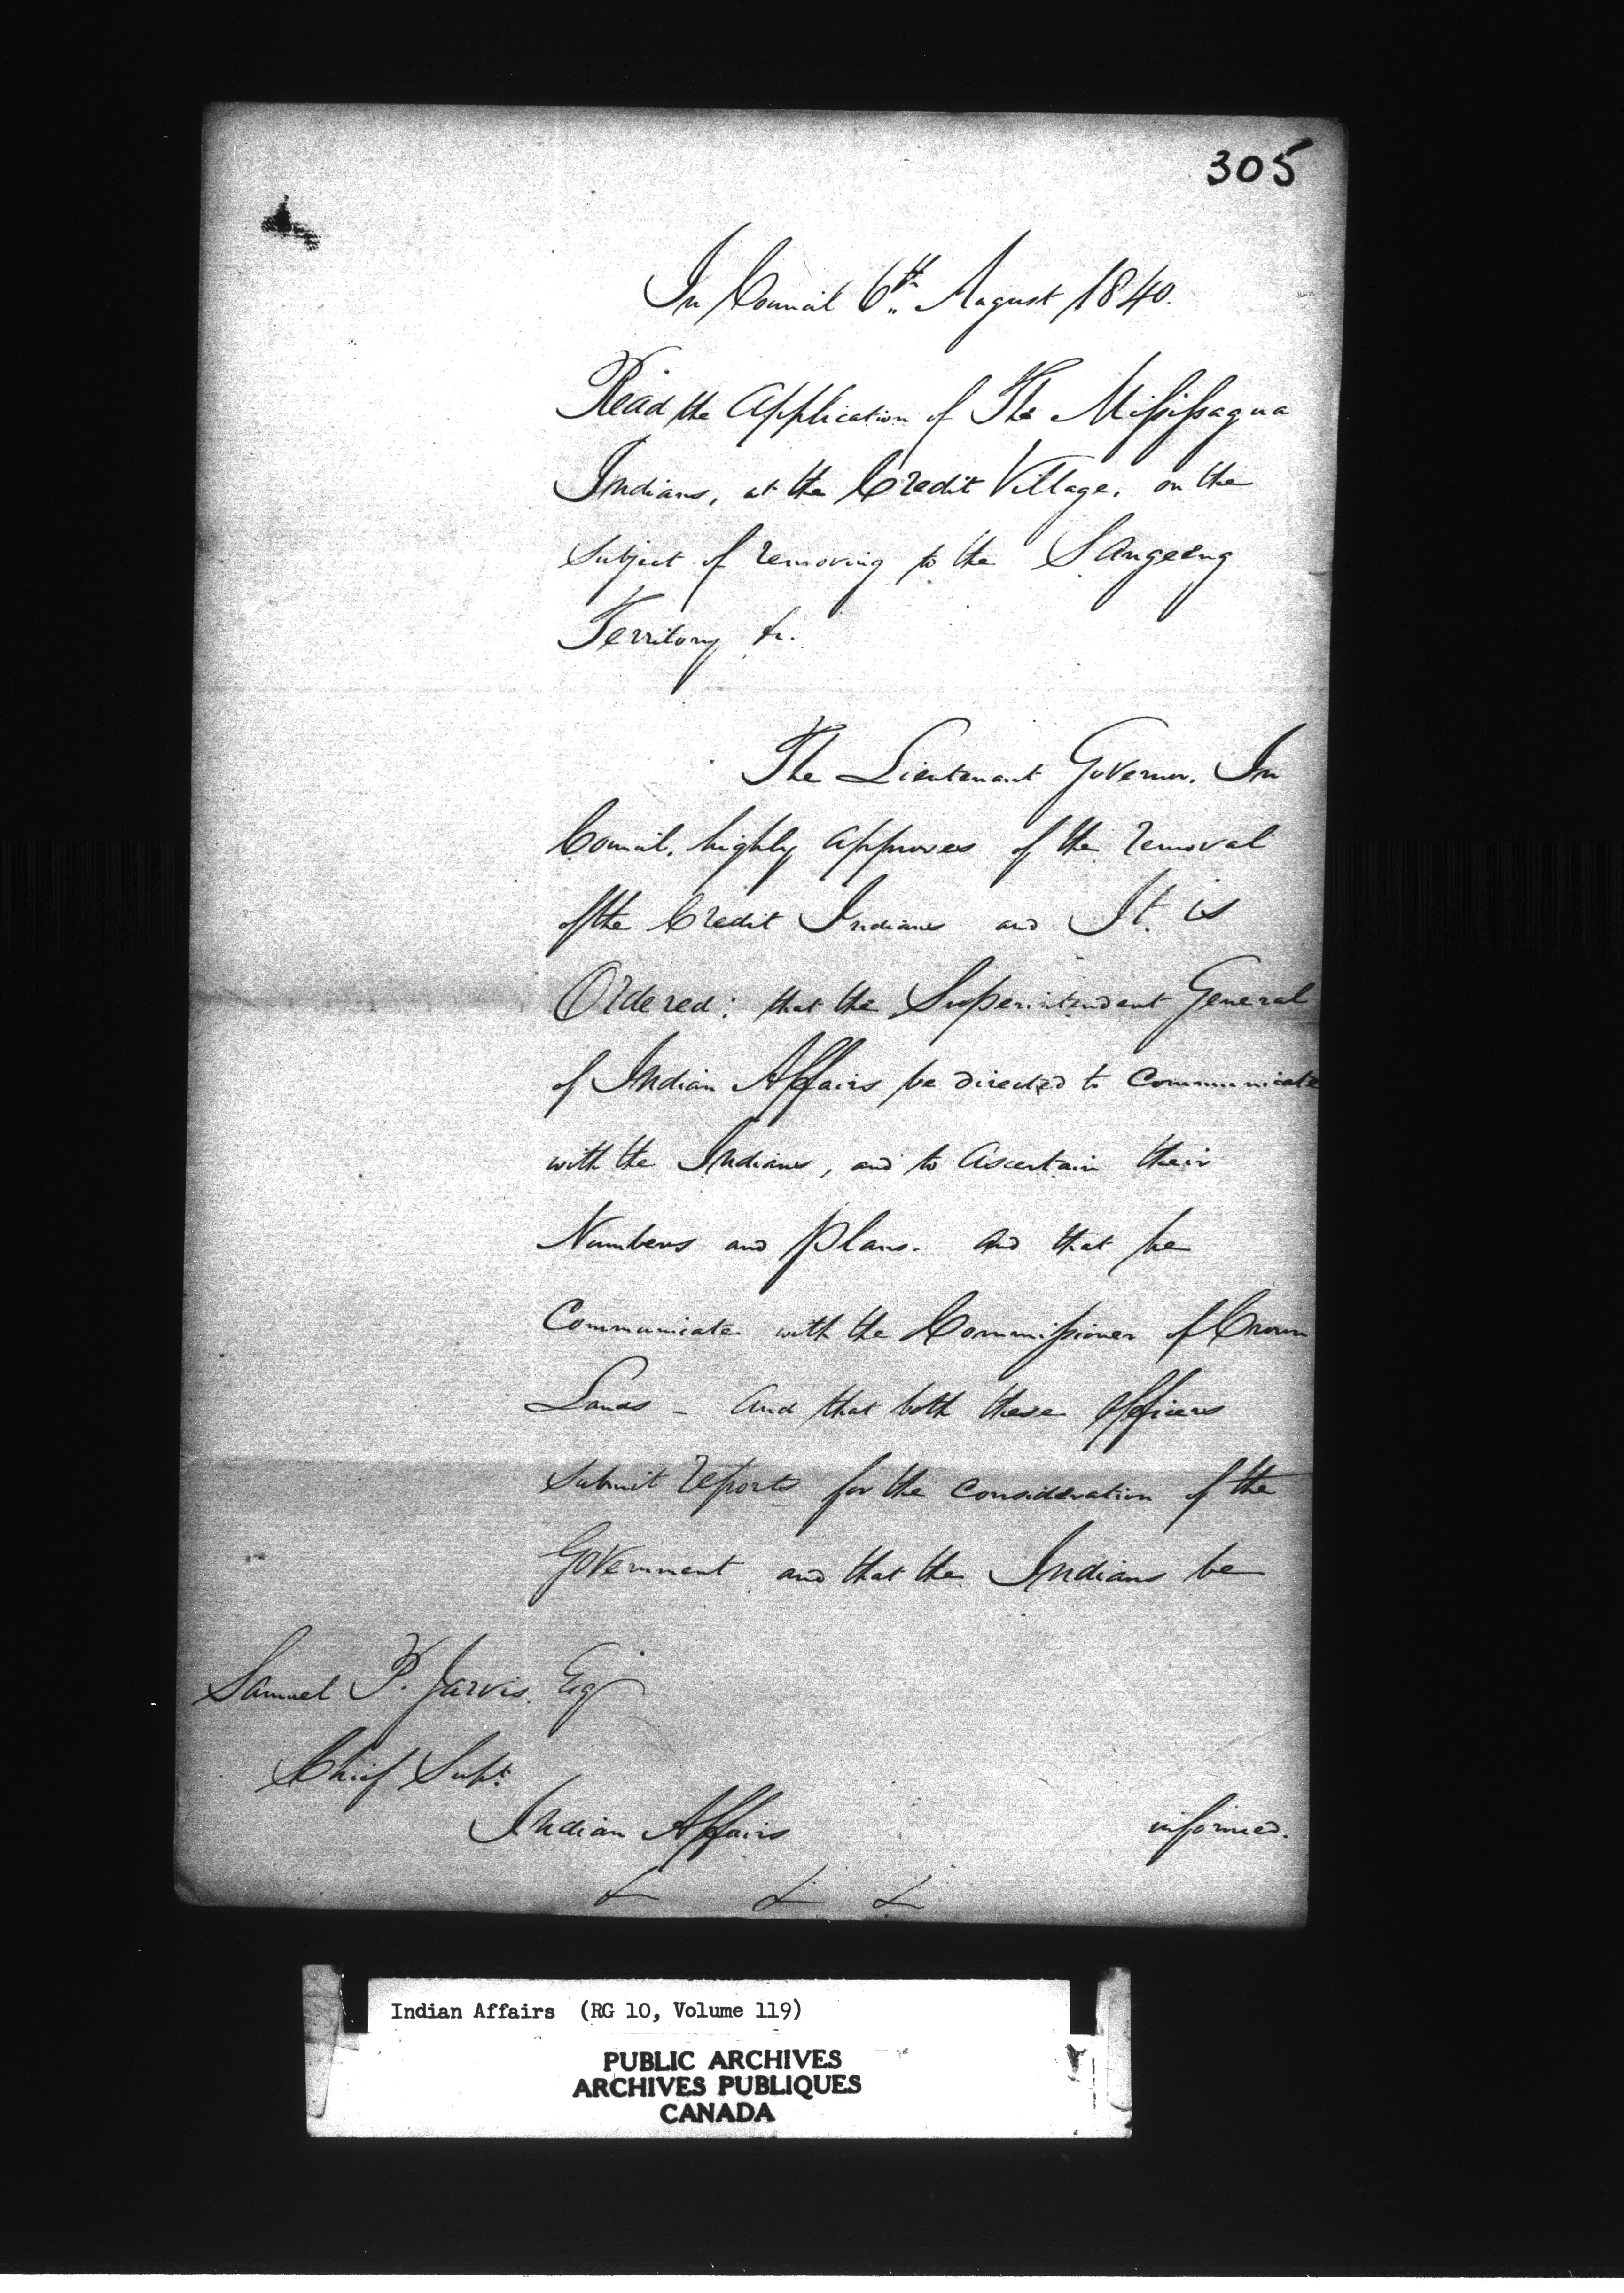 305
In Council 6th August 1840.
Read the Application of The Missisagua
Indians, at the Credit Village, on the
Subject of removing to the Saugeeng
Territory &c.
The Lieutenant Governor, In
Council, highly approves of the removal
of the Credit Indians and It is
Ordered: that the Superintendent General
of Indian Affairs be directed to Communicate
with the Indians, and to ascertain their
Numbers and plans. And that he
Communicate with the Commissioner of Crown
Lands - And that both these Officers
Submit reports for the consideration of the
Government and that the Indians be
Samuel P. Jarvis. Esqr
Chief Supt.
Indian Affairs informed.
&c &c &c
Indian Affairs (RG 10, Volume 119)
PUBLIC ARCHIVES
ARCHIVES PUBLIQUES
CANADA